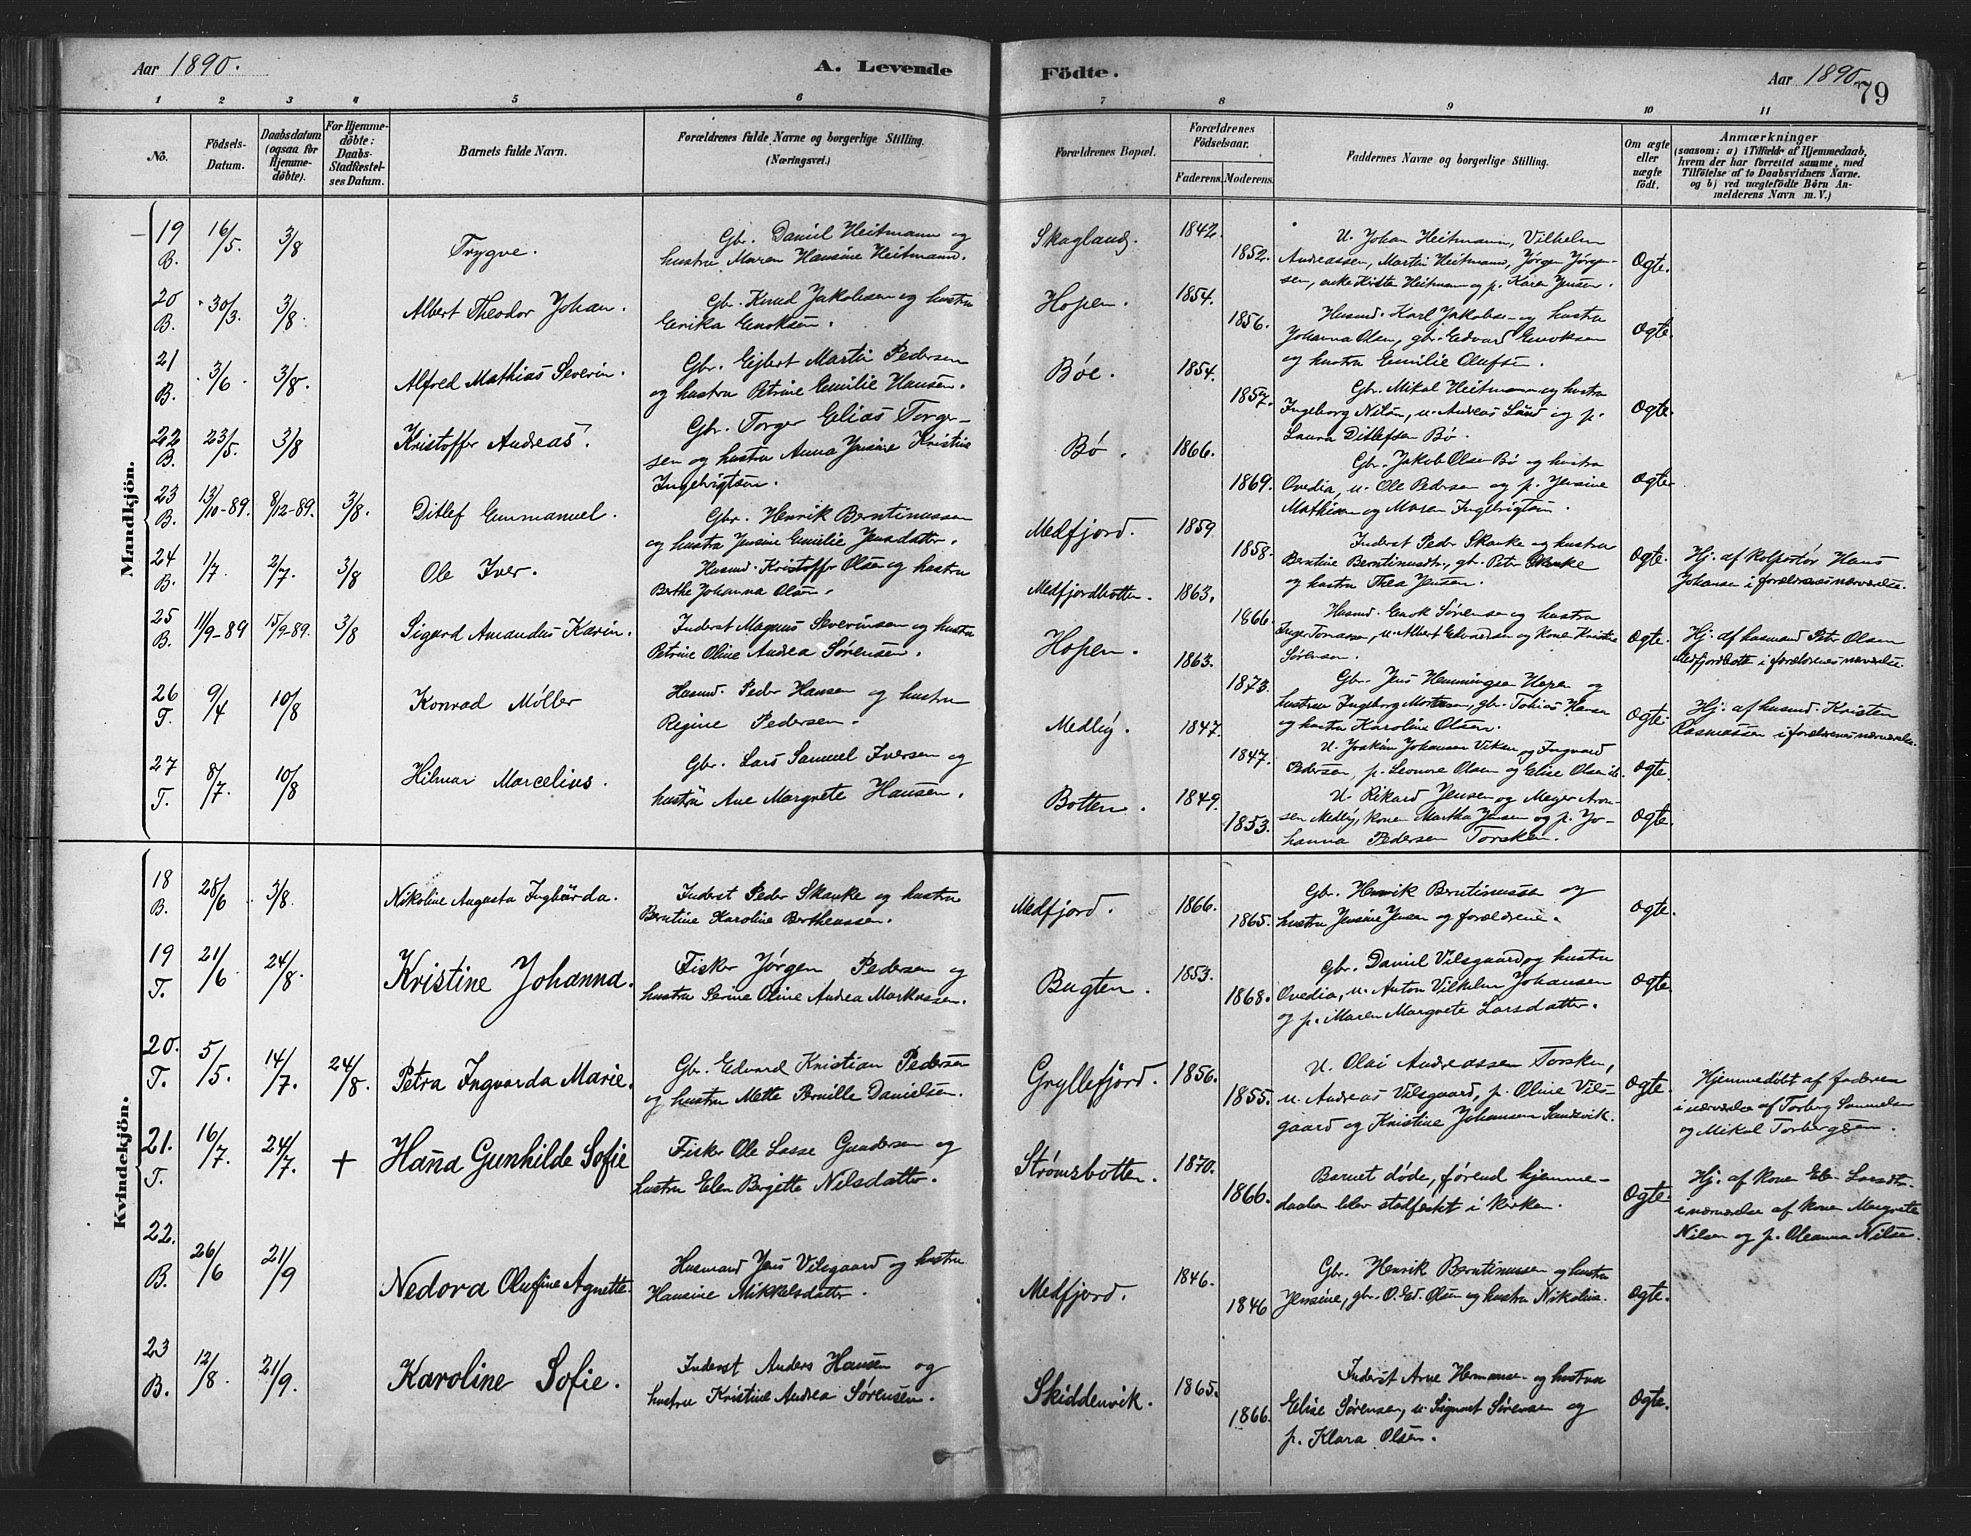 Aar 1890.
A. Levende
Födte.
Aar 1890
79
1 2 3 4 5 6 7 8 9 10 11
No.
Födsels-Datum.
Daabsdatum (ogsaa for Hjemme-döbte).
For Hjemme-döbte: Daabs-Stadfæstel-ses Datum.
Barnets fulde Navn.
Forældrenes fulde Navne og borgerlige Stilling.
(Næringsvei.)
Forældrenes Bopæl.
Forældrenes Födselsaar.
Faderens. Moderens.
Faddernes Navne og borgerlige Stilling.
Om ægte eller uægte födt.
Anmærkninger
(saasom: a) i Tilfælde af Hjemmedaab, hvem der har forrettet samme, med Tilföielse af to Daabsvidners Navne. og b) ved uægtefödte Börn An-melderens Navn m. V.)
Mandkjön.
19 B. 16/5. 3/8 Trygve.
Gbr. Daniel Heitmann og
hustru Maren Hansine Heitmann.
Skagland. 1842. 1852.
U. Johan Heitmann, Vilhelm
Andreassen, Martin Heitmann, Jørgen Jørgen-
sen, enke Kirsten Heitmann og p. Karen Jensen.
Ogte.
20 B. 30/3. 3/8. Albert Theodor Johan.
Gbr. Knud Jakobsen og hustru
Erika Enoksen.
Hopen. 1854. 1856.
Husmd. Karl Jakobsen og hustru
Johanna Olsen, gbr. Edvard Enoksen
og hustru Emilie Olufsen.
Ogte.
21 B. 3/6. 3/8. Alfred Mathias Severin.
Gbr. Ejlert Martin Pedersen
og hustru Petrine Emilie Hansen.
Bøe. 1854. 1857.
Gbr. Mikal Heitmann og hustru
Ingeborg Nilsen, u. Andreas Lund og p.
Laura Ditlefsen Bø.
Ogte.
22 B. 23/5. 3/8 Kristoffer Andreas.
Gbr. Torger Elias Torger-
sen og hustru Anna Jensine Kristine
Ingebrigtsen.
Bø. 1866. 1869.
Gbr. Jakob Olsen Bø og hustru
Ovedia, u. Ole Pedersen og p. Jensine
Mathisen og Maren Ingebrigtsen.
Ogte.
23 B. 13/10-89. 8/12-89. 3/8. Ditlef Emmanuel.
Gbr. Henrik Berntinussen
og hustru Jensine Emilie Jensdatter.
Medfjord. 1859. 1858.
Inderst Peder Skanke og hustru
Berntine Berntinusdtr, gbr. Petr Skanke
og hustru Thea Jensen.
Ogte.
Hj. af kolportør Hans
Johansen i forældrenes nærværelse.
24 B. 1/7. 2/7 3/8 Ole Iver.
Husmd. Kristoffer Olsen og hustru
Berthe Johanna Olsen.
Medfjordbotten. 1863. 1866.
Husmd. Enok Sørensen og hustru
Inger Tomassen, u. Albert Edvardsen og kone Kristine
Sørensen.
Ogte.
Hj. af husmand Petr Olsen
Medfjordbotten i forældrenes nærværelse.
25 B. 11/9-89 15/9-89. 3/8 Sigurd Amandus Karin.
Inderst Magnus Severinsen og hustru
Petrine Oline Andrea Sørensen.
Hopen. 1863. 1873.
Gbr. Jens Henningsen Hopen og
hustru Ingeborg Mortensen, gbr. Tobias Hansen
og hustru Karoline Olsen.
Ogte.
Hj. af husmd. Kristen
Rasmussen i forældrenes nærværelse.
26 T. 9/4 10/8 Konrad Möller
Husmd. Peder Hansen og hustru
Regine Pedersen.
Medby. 1847. 1847.
U. Joakim Johansen Viken og Ingvard
Pedersen, p. Leonore Olsen og Elise Olsen
Ogte.
27 T. 8/7. 10/8 Hilmar Marcelius.
Gbr. Lars Samuel Iversen og
hustru Ane Margrete Hansen.
Botten. 1849. 1853.
U. Rikard Jensen og Meyer Aron-
sen Medby, kone Martha Jensen og p. Jo-
hanna Pedersen Torsken.
Ogte.
Kvindekjön.
18 B. 28/6 3/8. Nikoline Augusta Ingbärda.
Inderst Peder Skanke og hustru
Berntine Karoline Bertheussen.
Medfjord. 1866. 1865.
Gbr. Henrik Berntinussen og
hustru Jensine Jensen og forældrene.
Ogte.
19 T. 21/6 24/8. Kristine Johanna.
Fisker Jørgen Pedersen og
hustru Serine Oline Andrea Markussen.
Bugten. 1853. 1868.
Gbr. Daniel Vilsgaard og hustru
Ovedia, u. Anton Vilhelm Johansen
og p. Maren Margrete Larsdatter.
Ogte.
20. T. 5/5. 14/7. 24/8. Petra Ingvarda Marie.
Gbr. Edvard Kristian Pedersen
og hustru Mette Pernille Danielsen.
Gryllefjord. 1856. 1855.
U. Olai Andreassen Torsken,
u. Andreas Vilsgaard, p. Oline Vils-
gaard og Kristine Johansen Sandsvik.
Ogte.
Hjemmedøbt af faderen
i nærværelse af Torberg Samuelsen
og Mikal Torbergsen.
21. T. 16/7. 24/7. + Hana Gunhilde Sofie
Fisker Ole Lasse Gundersen og
hustru Elen Bergitte Nilsdatter.
Strømsbotten. 1870. 1866.
Barnet døde, førend hjemme-
daaben blev stadfæstet i kirken.
Ogte.
Hj. af kone Elen Larsdtr.
i nærværelse af kone Margrete
Nilsen og p. Oleanna Nilsen.
22. B. 26/6 21/9 Nedora Olufine Agnette.
Husmand Jens Vilsgaard og hustru
Hansine Mikkelsdatter.
Medfjord. 1846. 1846
Gbr. Henrik Berntinussen og hustru
Jensine, gbr. O. Ed. Olsen og hustru Nikoline.
Ogte.
23 B. 12/8. 21/9. Karoline Sofie.
Inderst Anders Hansen og
hustru Kristine Andrea Sørensen.
Skiddenvik. 1865. 1866.
Inderst Arne Hermansen og hustru
Elise Sørensen, u. Signart Sørensen og
p. Klara Olsen.
Ogte.